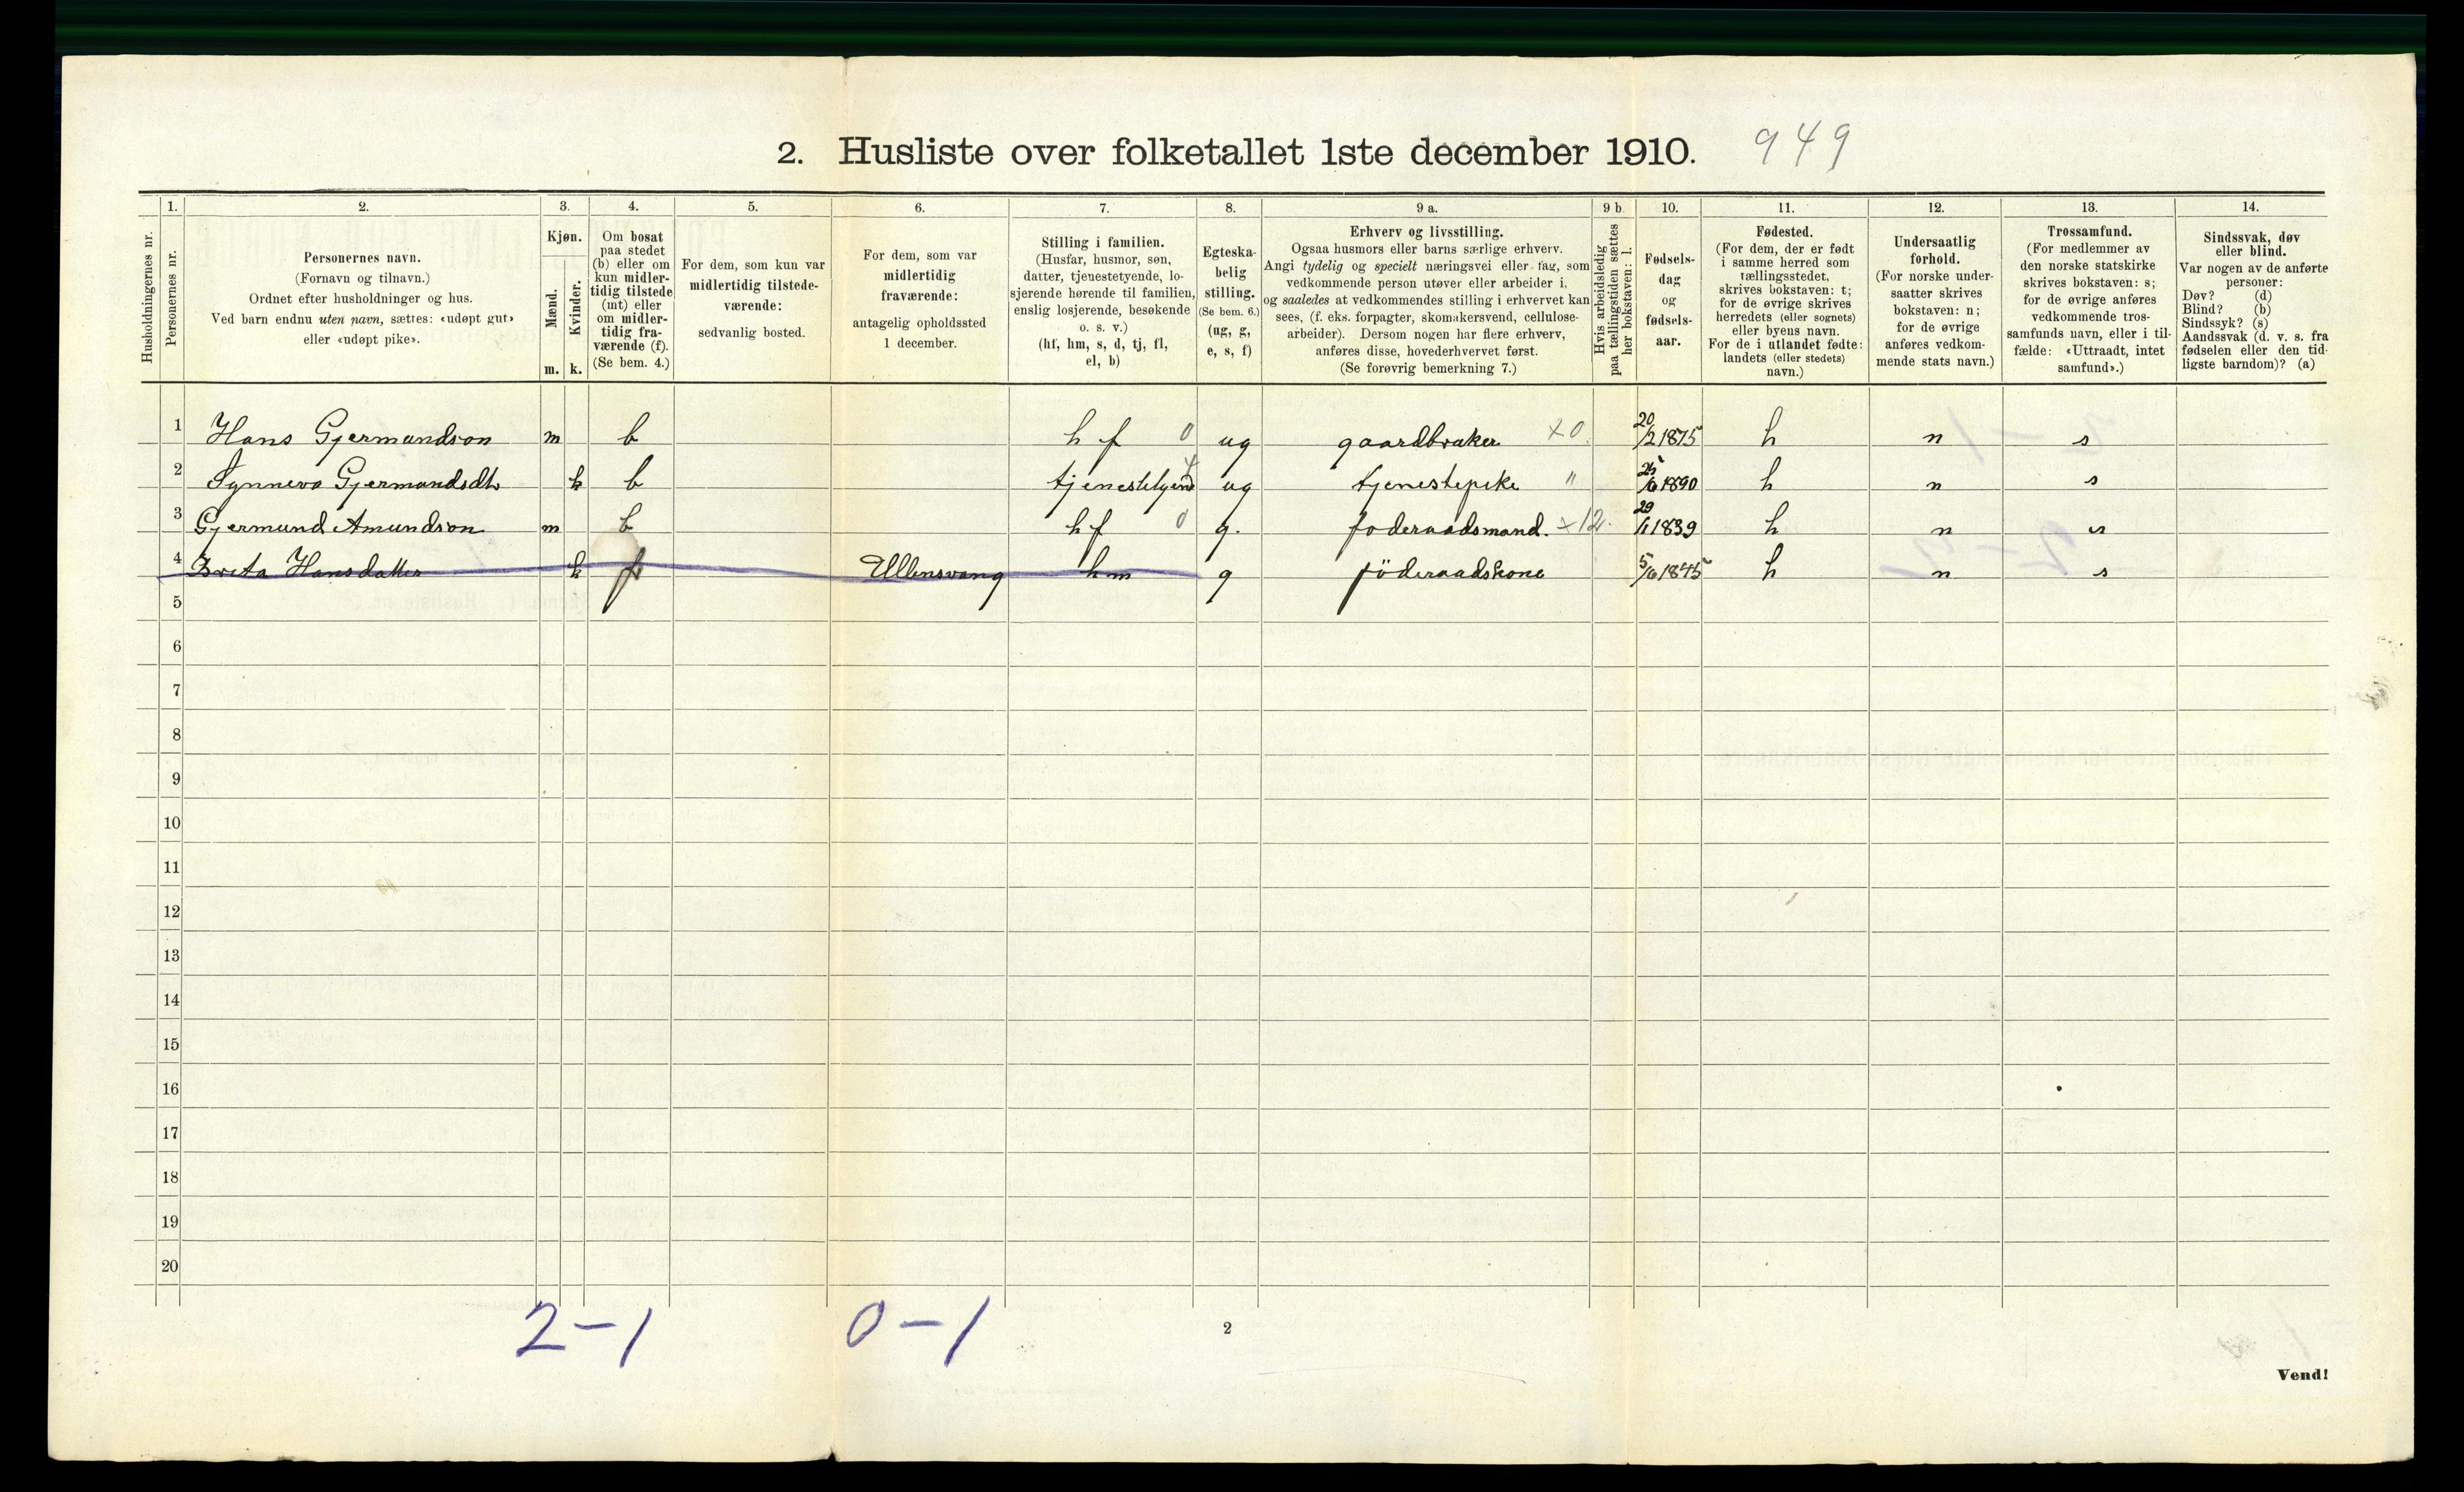 2. Husliste over folketallet 1ste december 1910. 949
Husholdningernes nr.
1.
Personernes nr.
2.
Personernes navn.
(Fornavn og tilnavn.)
Ordnet efter husholdninger og hus.
Ved barn endnu uten navn, sættes: «udøpt gut»
eller «udøpt pike».
3.
Kjøn.
Mænd.
Kvinder.
m. k.
4.
Om bosat
paa stedet
(b) eller om
kun midler-
tidig tilstede
(mt) eller
om midler-
tidig fra-
værende (f).
(Se bem. 4.)
5.
For dem, som kun var
midlertidig tilstede-
værende:
sedvanlig bosted.
6.
For dem, som var
midlertidig
fraværende:
antagelig opholdssted
1 december.
7.
Stilling i familien.
(Husfar, husmor, søn,
datter, tjenestetyende, lo-
sjerende hørende til familien,
enslig losjerende, besøkende
o. s. v.)
(hf, hm, s, d, tj, fl,
el, b)
8.
Egteska-
belig
stilling.
(Se bem. 6.)
(ug, g,
e, s, f)
9 a.
Erhverv og livsstilling.
Ogsaa husmors eller barns særlige erhverv.
Angi tydelig og specielt næringsvei eller fag, som
vedkommende person utøver eller arbeider i,
og saaledes at vedkommendes stilling i erhvervet kan
sees, (f. eks. forpagter, skomakersvend, cellulose-
arbeider). Dersom nogen har flere erhverv,
anføres disse, hovederhvervet først.
(Se forøvrig bemerkning 7.)
9 b
Hvis arbeidsledig
paa tællingstiden sættes
her bokstaven: l.
10.
Fødsels-
dag
og
fødsels-
aar.
11.
Fødested.
(For dem, der er født
i samme herred som
tællingsstedet,
skrives bokstaven: t;
for de øvrige skrives
herredets (eller sognets)
eller byens navn.
For de i utlandet fødte:
landets (eller stedets)
navn.)
12.
Undersaatlig
forhold.
(For norske under-
saatter skrives
bokstaven: n;
for de øvrige
anføres vedkom-
mende stats navn.)
13.
Trossamfund.
(For medlemmer av
den norske statskirke
skrives bokstaven: s;
for de øvrige anføres
vedkommende tros-
samfunds navn, eller i til-
fælde: «Uttraadt, intet
samfund».)
14.
Sindssvak, døv
eller blind.
Var nogen av de anførte
personer:
Døv? (d)
Blind? (b)
Sindssyk? (s)
Aandssvak (d. v. s. fra
fødselen eller den tid-
ligste barndom)? (a)
1 Hans Gjermundson m b hf 0 ug gaardbruker x0 20/2 1875 h n s
2 Synneva Gjermundsdtr k b tjenestetyend 4 ug tjenestepike " 25/6 1890 h n s
3 Gjermund Amundson m b hf 0 g. foderaadsmand. x12. 29/1 1839 h n s
4 Brita Hansdatter k f Ullensvang hm g föderaadskone 5/6 1845 h n s
5
6
7
8
9
10
11
12
13
14
15
16
17
18
19
20
2-1 0-1
2
Vend!